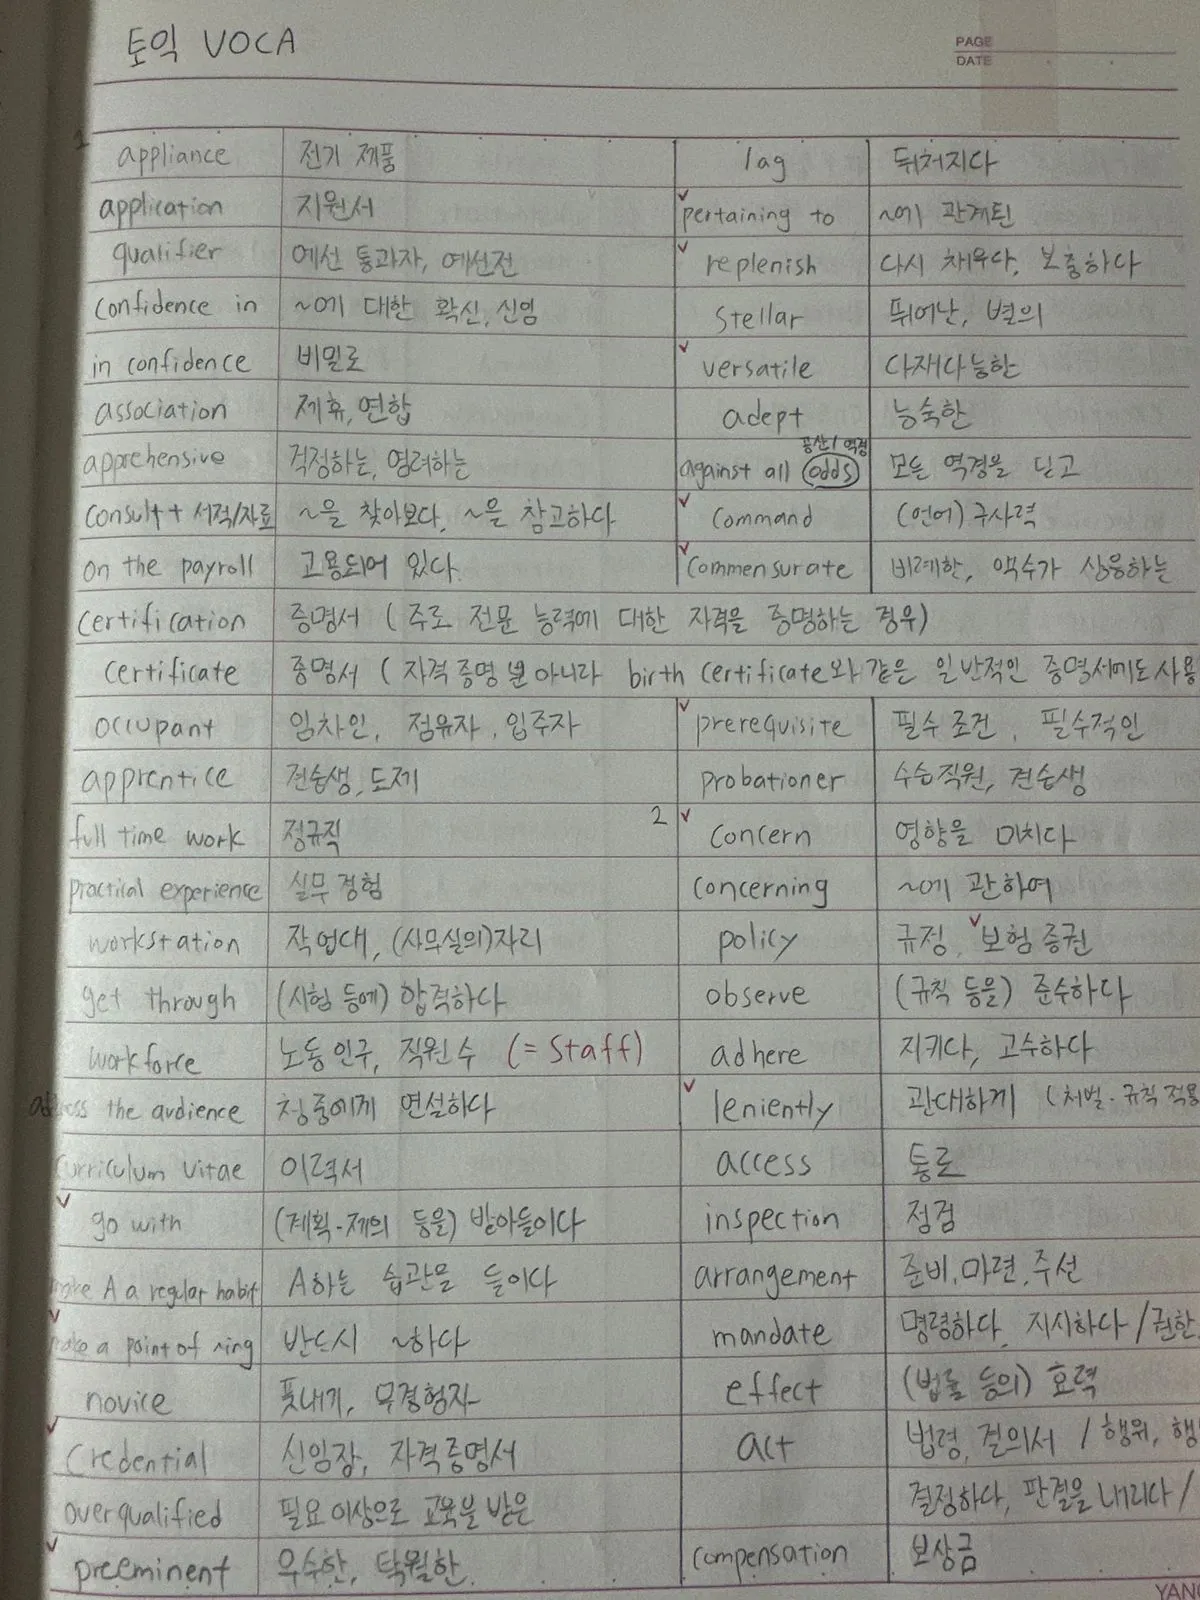 토익 VOCA
PAGE
DATE
1
appliance 전기 제품
application 지원서
qualifier 예선 통과자, 예선전
confidence in ~에 대한 확신, 신임
in confidence 비밀로
association 제휴, 연합
apprehensive 걱정하는, 염려하는
consult + 서적/자료 ~을 찾아보다, ~을 참고하다
on the payroll 고용되어 있다
lag 뒤처지다
pertaining to ~에 관계된
replenish 다시 채우다, 보충하다
stellar 뛰어난, 별의
versatile 다재다능한
adept 능숙한
공산 / 역경
against all odds 모든 역경을 딛고
command (언어) 구사력
commensurate 비례한, 액수가 상응하는
certification 증명서 (주로 전문 능력에 대한 자격을 증명하는 경우)
certificate 증명서 (자격 증명 뿐 아니라 birth certificate와 같은 일반적인 증명서에도 사용
occupant 임차인, 점유자, 입주자
apprentice 견습생, 도제
full time work 정규직
practical experience 실무 경험
workstation 작업대, (사무실의)자리
get through (시험 등에) 합격하다
workforce 노동 인구, 직원 수 (= staff)
the audience 청중에게 연설하다
curriculum vitae 이력서
go with (계획·제의 등을) 받아들이다
A a regular habit A하는 습관을 들이다
a point of ~ing 반드시 ~하다
novice 풋내기, 무경험자
credential 신임장, 자격증명서
overqualified 필요 이상으로 교육을 받은
preeminent 우수한, 탁월한
prerequisite 필수 조건, 필수적인
probationer 수습직원, 견습생
2
concern 영향을 미치다
concerning ~에 관하여
policy 규정, 보험 증권
observe (규칙 등을) 준수하다
adhere 지키다, 고수하다
leniently 관대하게 (처벌·규칙 적용
access 통로
inspection 점검
arrangement 준비, 마련, 주선
mandate 명령하다, 지시하다 / 권한
effect (법률 등의) 효력
act 법령, 결의서 / 행위, 행
결정하다, 판결을 내리다 /
compensation 보상금